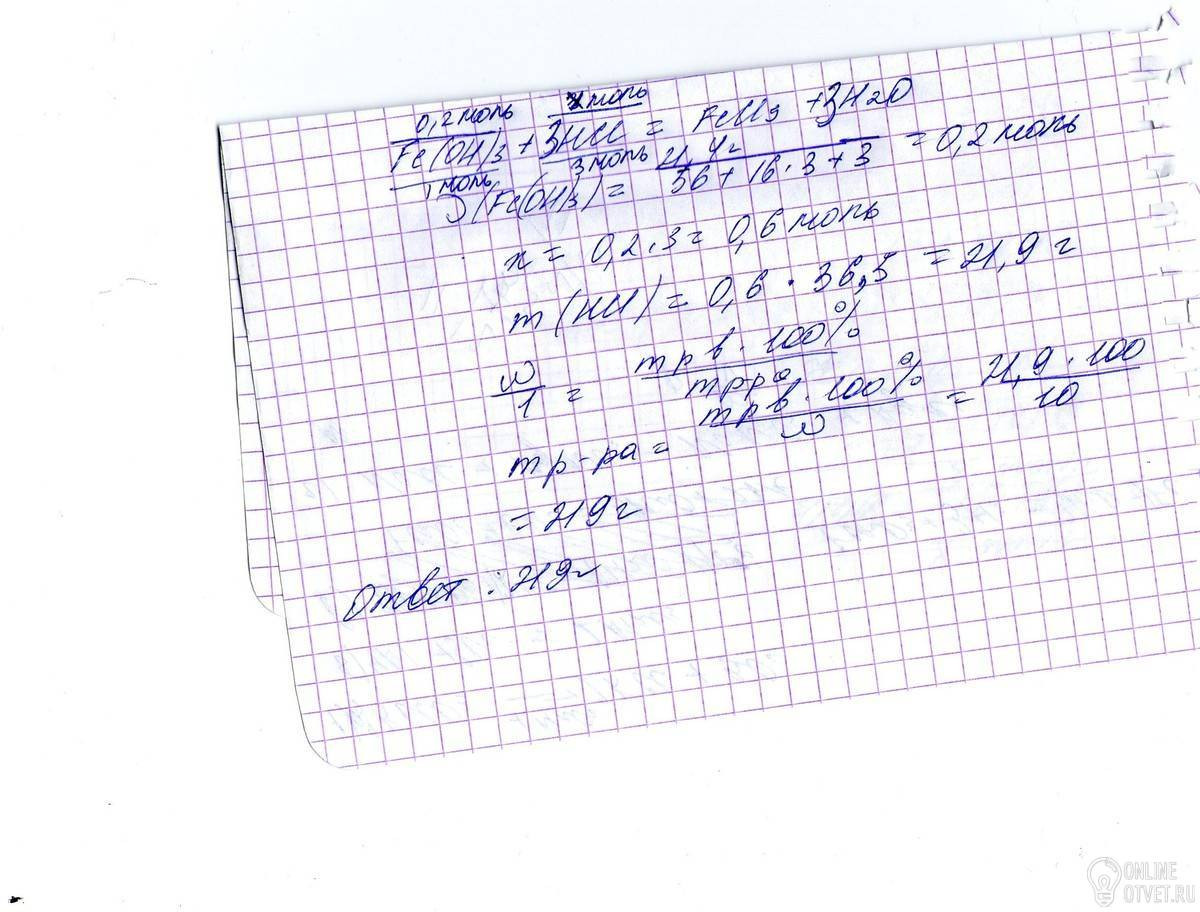 0,2 моль x моль
Fe(OH)3 + 3HCl = FeCl3 + 3H2O
1 моль 3 моль
ν(Fe(OH)3) = 21,4г / 56+16·3+3 = 0,2 моль
x = 0,2·3 = 0,6 моль
m(HCl) = 0,6·36,5 = 21,9 г
ω/1 = m р в · 100% / m р-ра
m р-ра = m р в · 100% / ω = 21,9·100 / 10
= 219г
Ответ: 219г
ONLINE
OTVET.RU